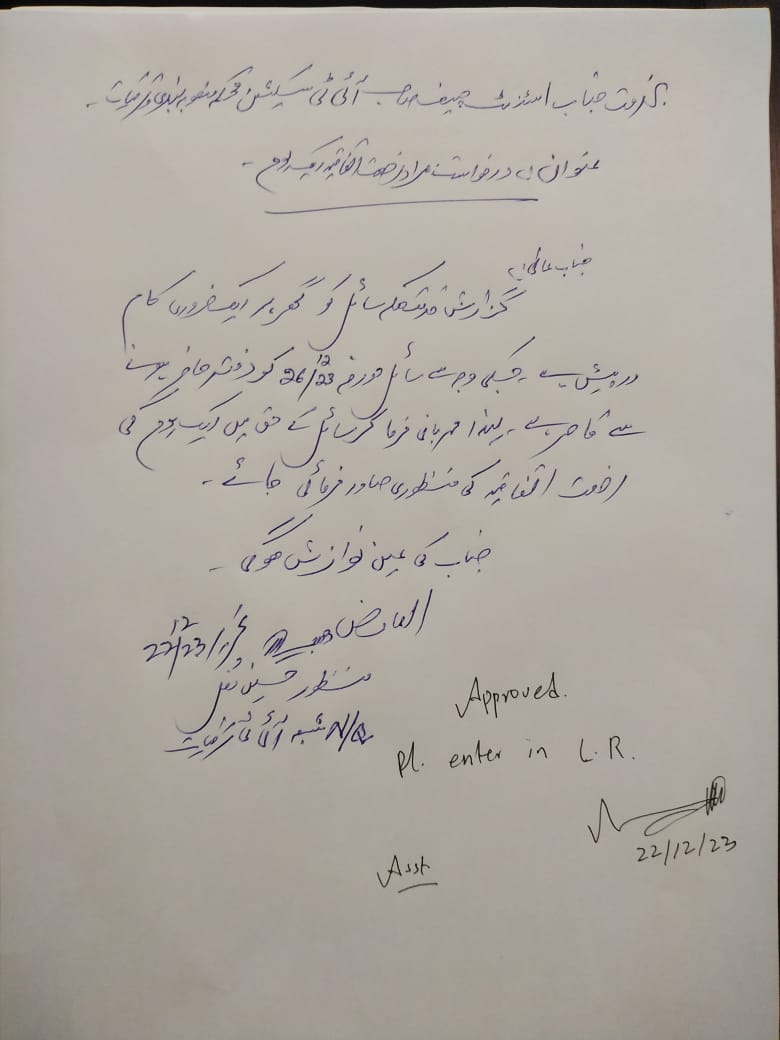 بخدمت جناب اسسٹنٹ چیف صاحب آئی ٹی سیکشن محکمہ منصوبہ بندی و ترقیات۔
عنوان:۔ درخواست بمراد رخصت اتفاقیہ ایک یوم۔
جناب عالی!
گزارش خدمت ہے کہ سائل کو گھر پر ایک ضروری کام
درپیش ہے۔ جسکی وجہ سے سائل مورخہ 26/12/23 کو دفتر حاضر ہونے
سے قاصر ہے۔ لہذا مہربانی فرما کر سائل کے حق میں ایک یوم کی
رخصت اتفاقیہ کی منظوری صادر فرمائی جائے۔
جناب کی عین نوازش ہوگی۔
العارض 22/12/23
منظور حسین مغل
N/Q شعبہ آئی ٹی ترقیات
Approved.
Pl. enter in L.R.
22/12/23
Asst